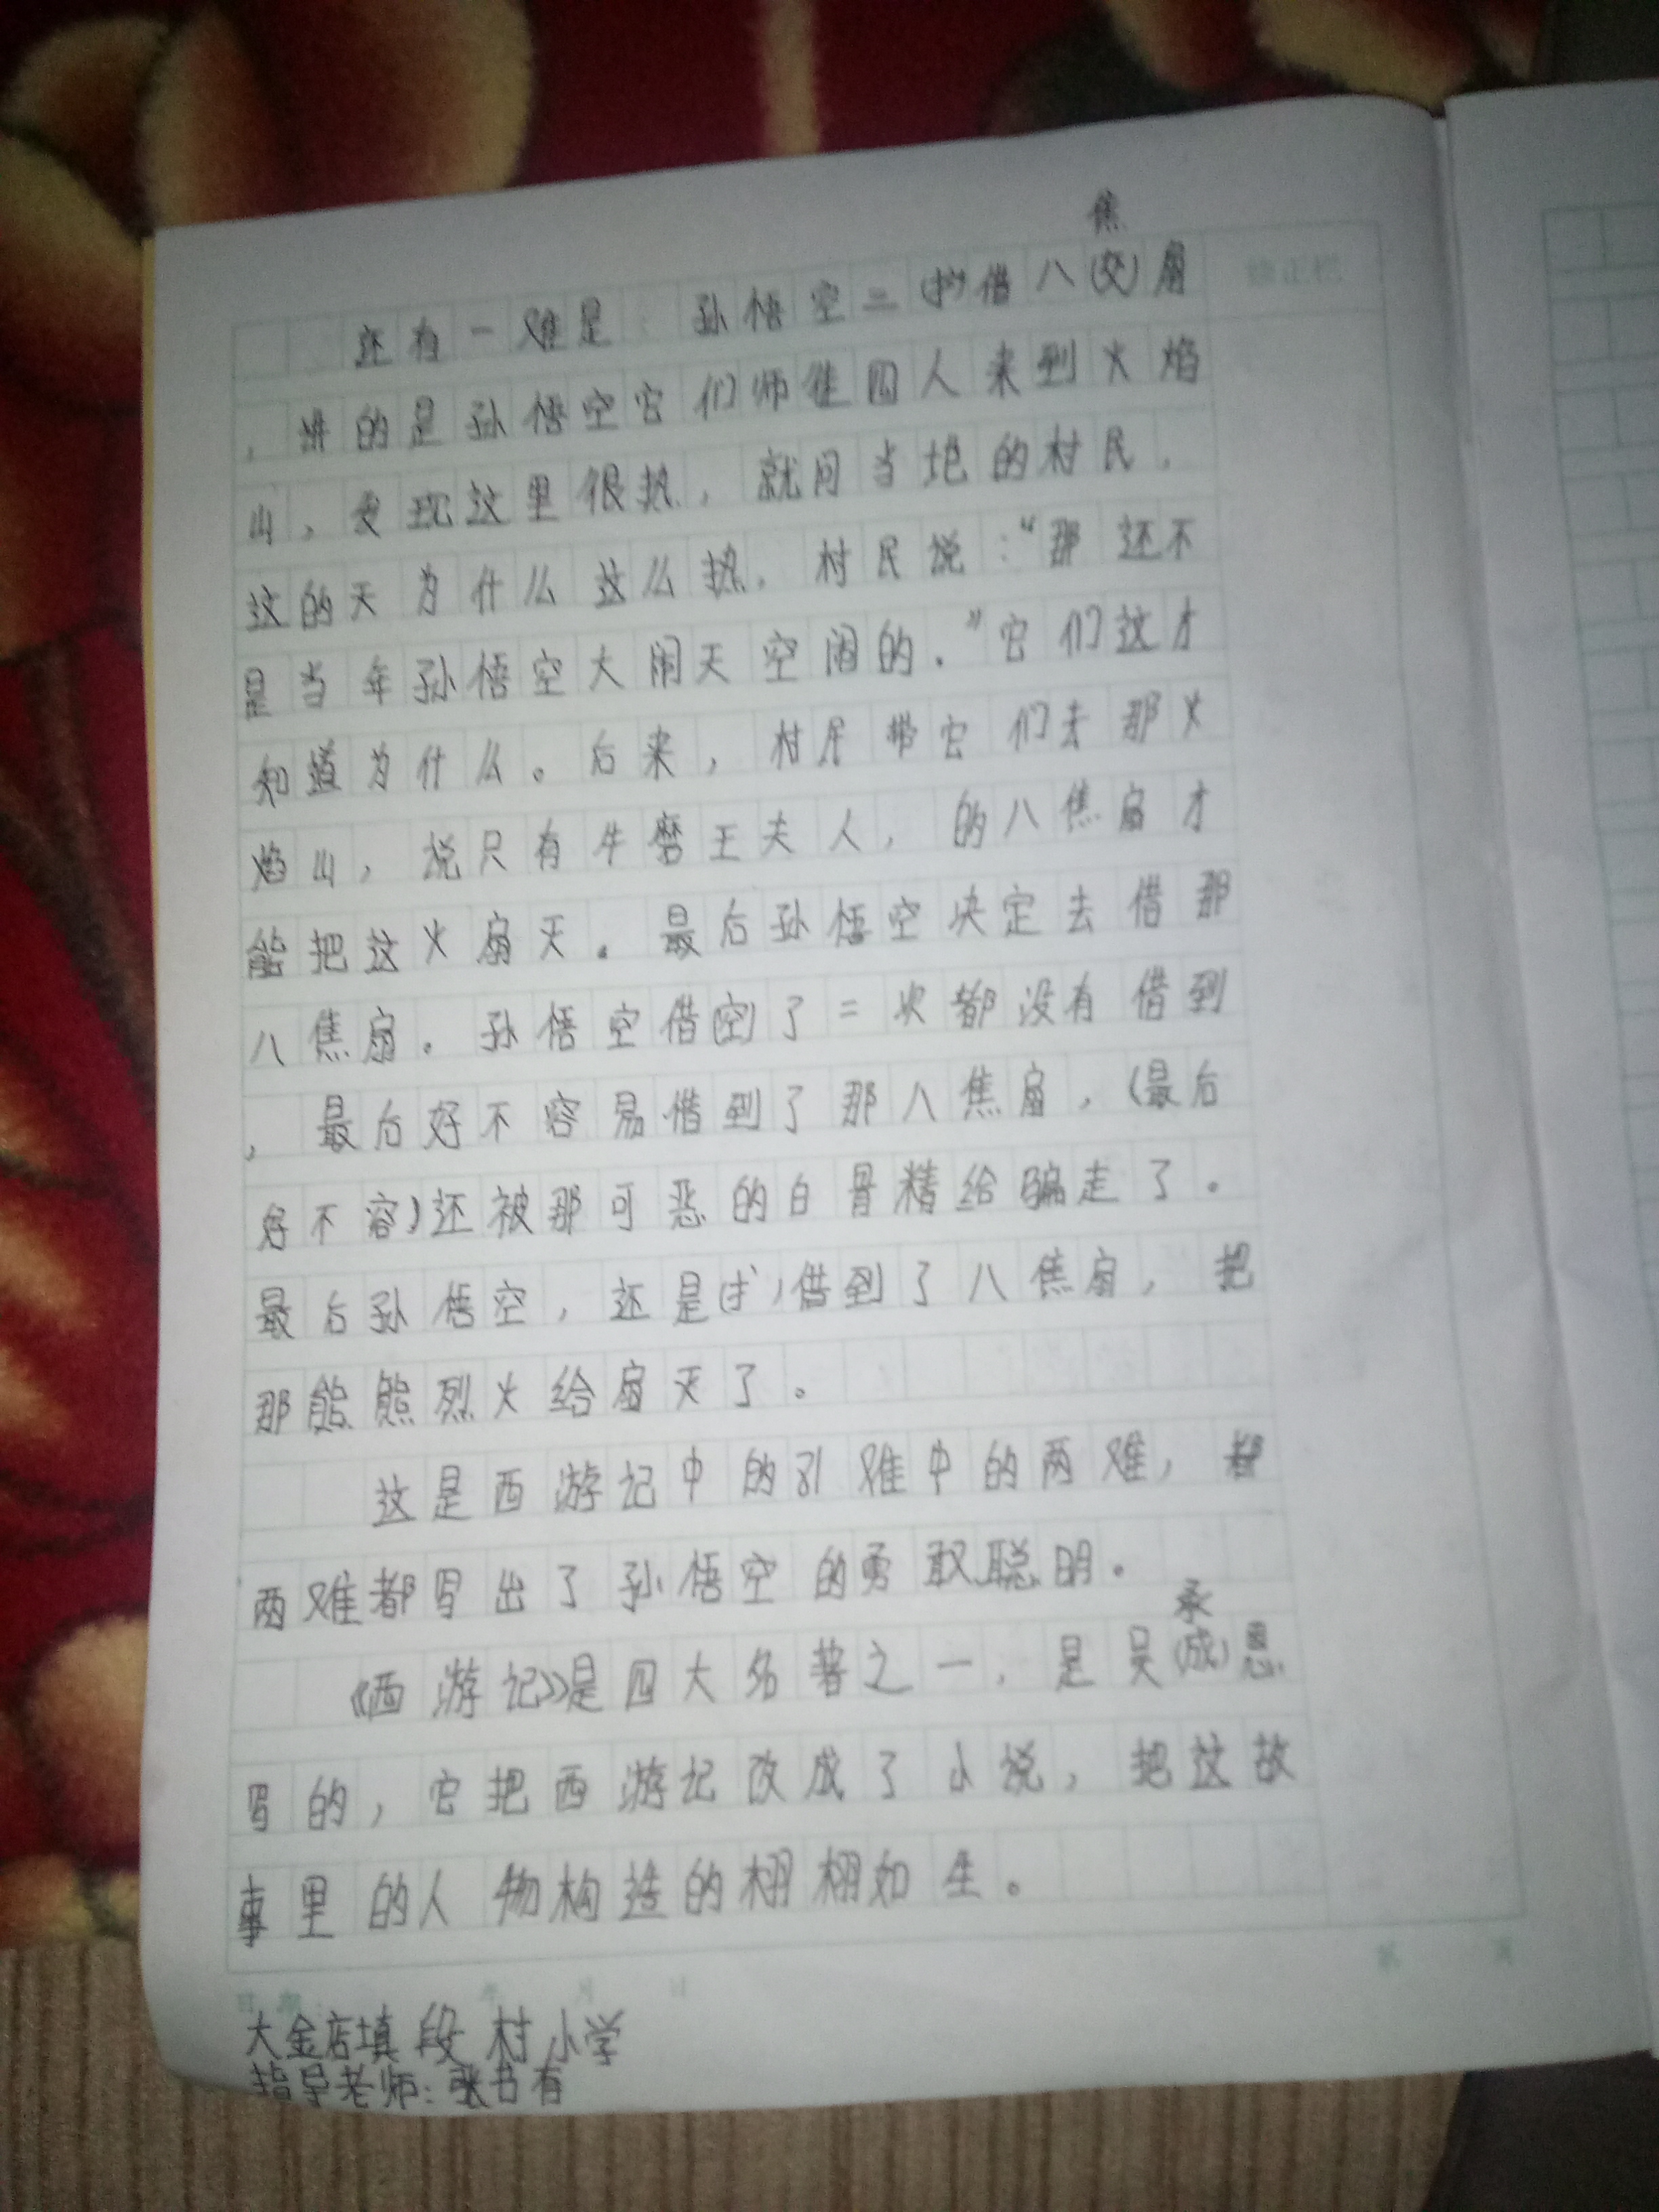 焦
还有一难是：孙悟空三(护)借八(交)扇
，讲的是孙悟空它们师徒四人来到火焰
山，发现这里很热，就问当地的村民，
这的天为什么这么热，村民说：“那还不
是当年孙悟空大闹天空闹的。”它们这才
知道为什么。后来，村民带它们去那火
焰山，说只有牛磨王夫人，的八焦扇才
能把这火扇灭。最后孙悟空决定去借那
八焦扇。孙悟空借(空)了二次都没有借到
，最后好不容易借到了那八焦扇，(最后
好不容)还被那可恶的白骨精给骗走了。
最后孙悟空，还是(扌)借到了八焦扇，把
那熊熊烈火给扇灭了。
这是西游记中的81难中的两难，
两难都写出了孙悟空的勇敢聪明。
承
《西游记》是四大名著之一，是吴(成)恩
写的，它把西游记改成了小说，把这故
事里的人物构造的栩栩如生。
日期： 年 月 日
大金店填段村小学
指导老师：张书有